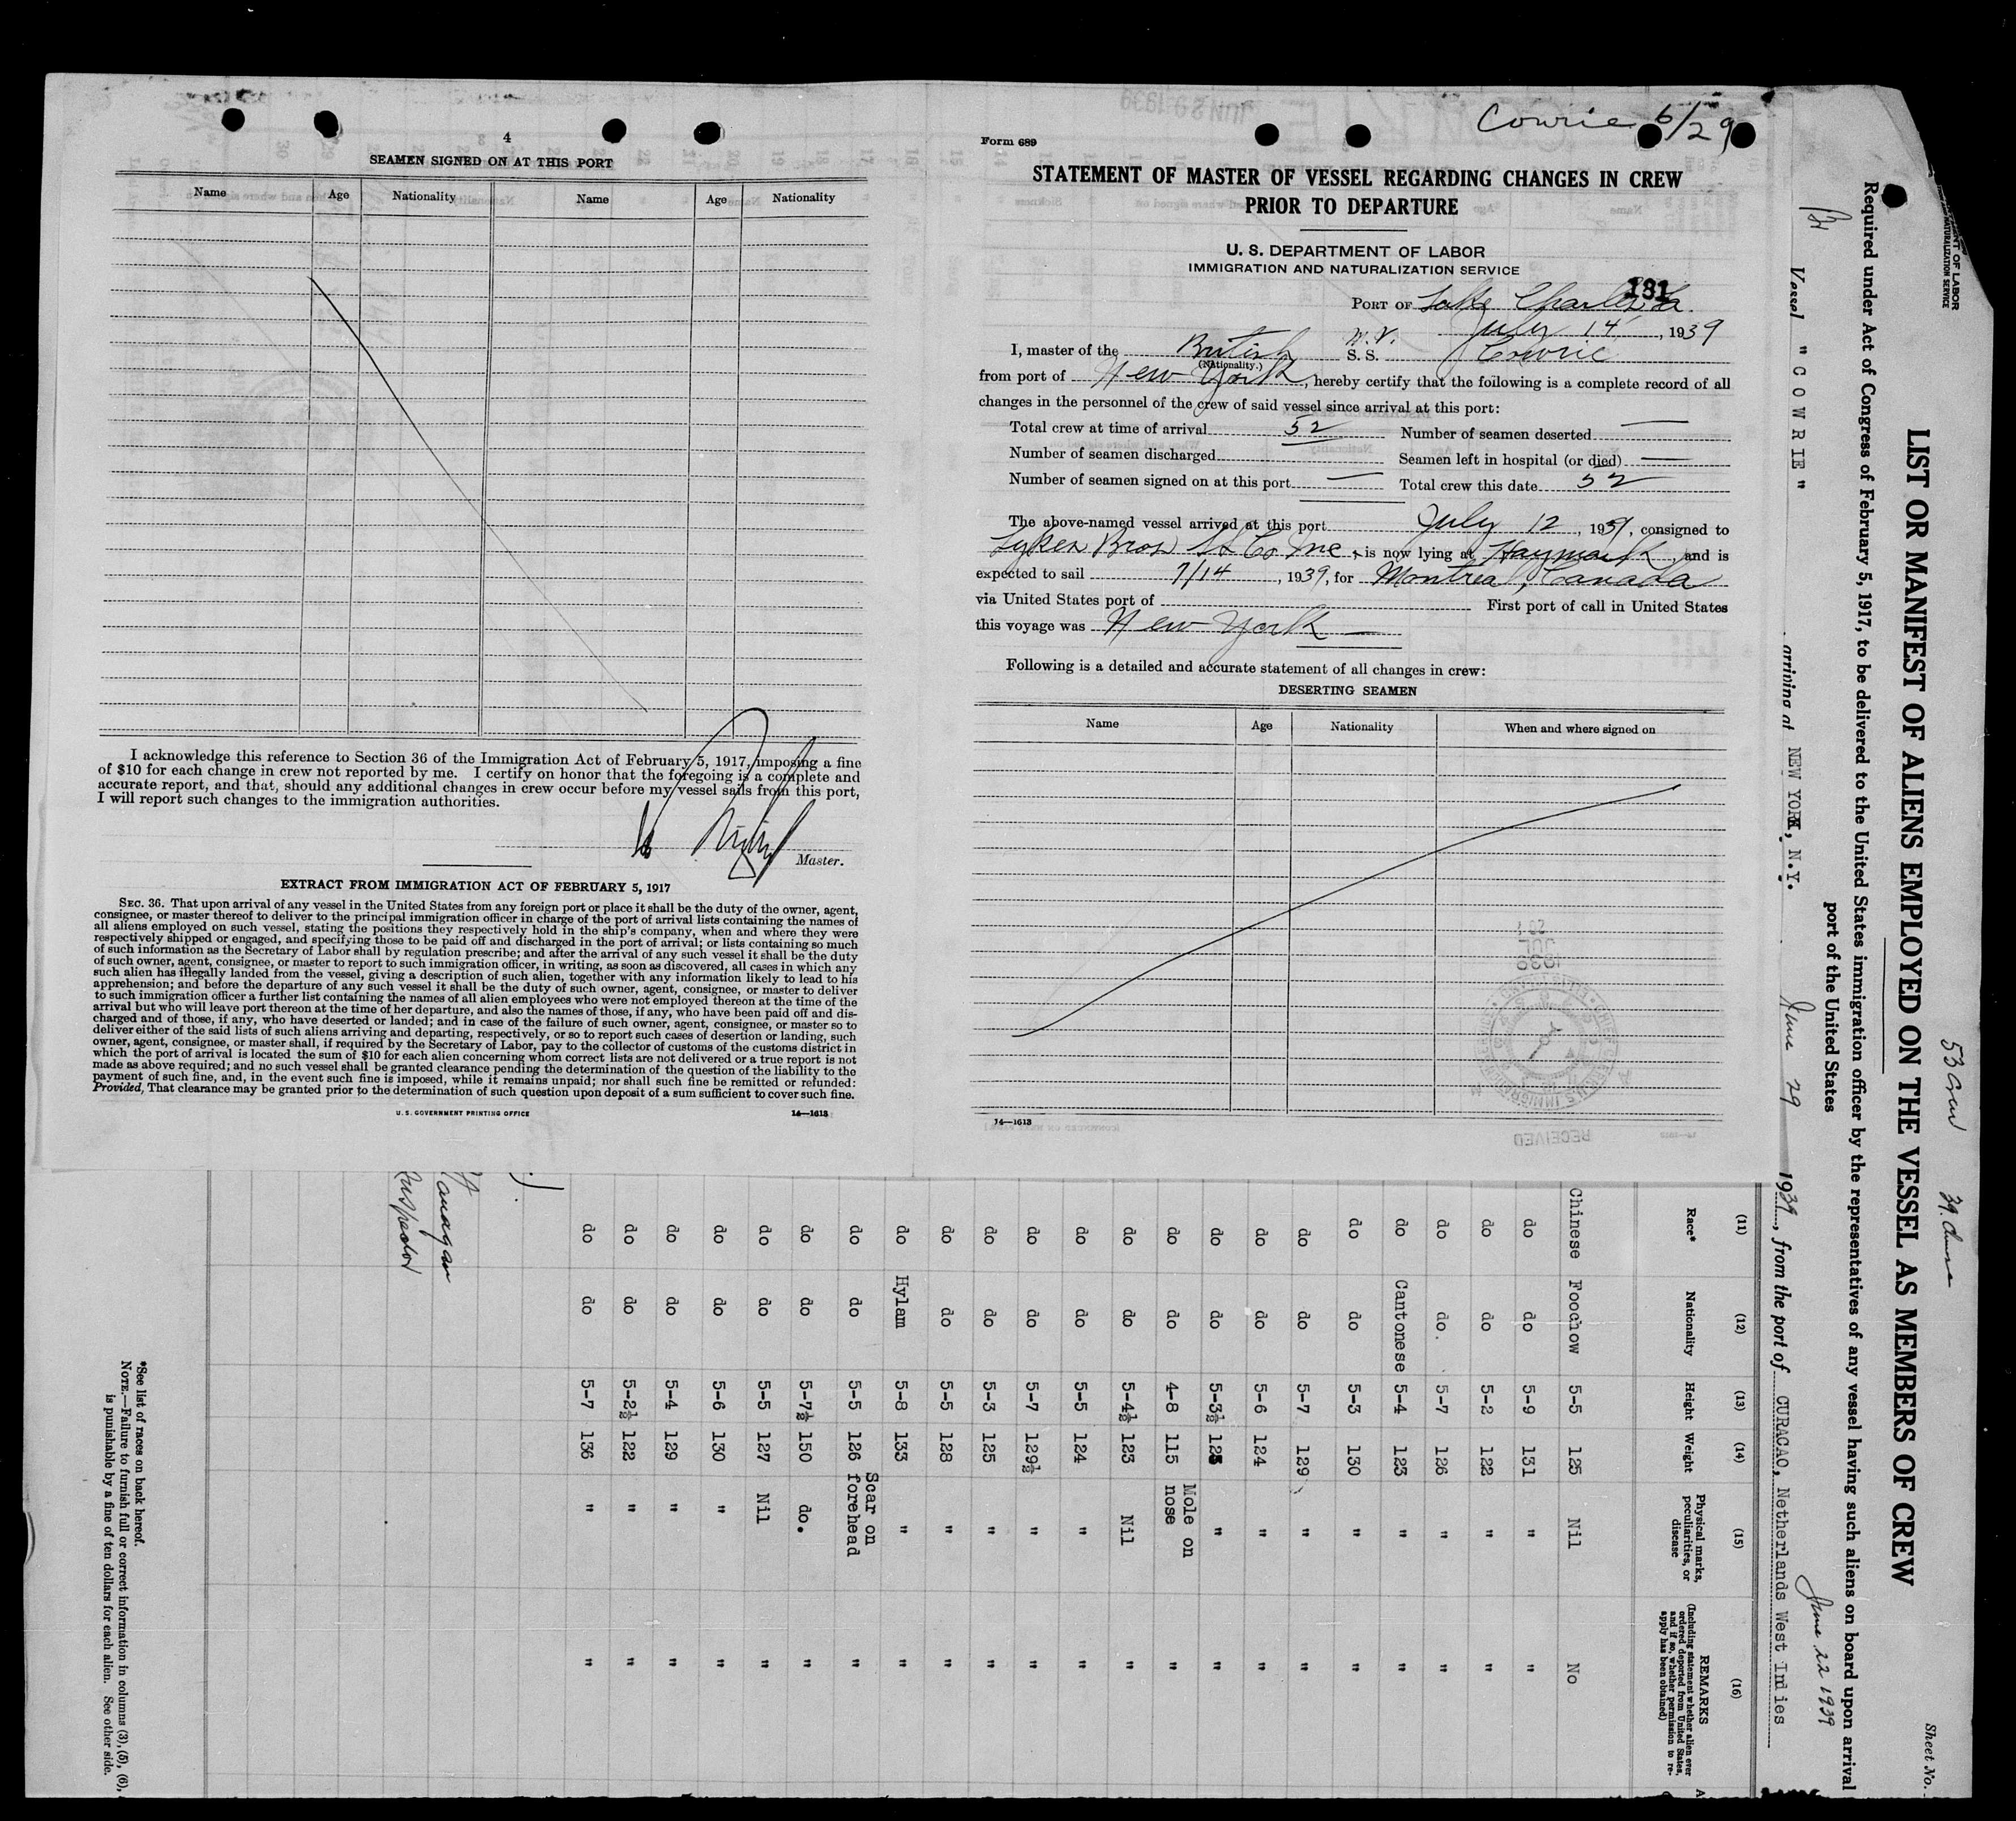 4
SEAMEN SIGNED ON AT THIS PORT
Name Age Nationality Name Age Nationality
I acknowledge this reference to Section 36 of the Immigration Act of February 5, 1917, imposing a fine
of $10 for each change in crew not reported by me. I certify on honor that the foregoing is a complete and
accurate report, and that, should any additional changes in crew occur before my vessel sails from this port,
I will report such changes to the immigration authorities.
Master.
EXTRACT FROM IMMIGRATION ACT OF FEBRUARY 5, 1917
SEC. 36. That upon arrival of any vessel in the United States from any foreign port or place it shall be the duty of the owner, agent,
consignee, or master thereof to deliver to the principal immigration officer in charge of the port of arrival lists containing the names of
all aliens employed on such vessel, stating the positions they respectively hold in the ship's company, when and where they were
respectively shipped or engaged, and specifying those to be paid off and discharged in the port of arrival; or lists containing so much
information as the Secretary of Labor shall by regulation prescribe; and after the arrival of any such vessel it shall be the duty
of such owner, agent, consignee, or master to report to such immigration officer, in writing, as soon as discovered, all cases in which any
such alien has illegally landed from the vessel, giving a description of such alien, together with any information likely to lead to his
apprehension; and before the departure of any such vessel it shall be the duty of such owner, agent, consignee, or master to deliver
to such immigration officer a further list containing the names of all alien employees who were not employed thereon at the time of the
arrival but who will leave port thereon at the time of her departure, and also the names of those, if any, who have been paid off and dis-
charged and of those, if any, who have deserted or landed; and in case of the failure of such owner, agent, consignee, or master so to
deliver either of the said lists of such aliens arriving and departing, respectively, or so to report such cases of desertion or landing, such
owner, agent, consignee, or master shall, if required by the Secretary of Labor, pay to the collector of customs of the customs district in
which the port of arrival is located the sum of $10 for each alien concerning whom correct lists are not delivered or a true report is not
made as above required; and no such vessel shall be granted clearance pending the determination of the question of the liability to the
payment of such fine, and, in the event such fine is imposed, while it remains unpaid; nor shall such fine be remitted or refunded:
Provided, That clearance may be granted prior to the determination of such question upon deposit of a sum sufficient to cover such fine.
U. S. GOVERNMENT PRINTING OFFICE 14—1613
Cowrie 6/29
Form 689
STATEMENT OF MASTER OF VESSEL REGARDING CHANGES IN CREW
PRIOR TO DEPARTURE
U. S. DEPARTMENT OF LABOR
IMMIGRATION AND NATURALIZATION SERVICE
181
PORT OF Lake Charles La.
July 14, 1939
I, master of the British M.V. S. S. Cowrie
(Nationality.)
from port of New York, hereby certify that the following is a complete record of all
changes in the personnel of the crew of said vessel since arrival at this port:
Total crew at time of arrival 52 Number of seamen deserted —
Number of seamen discharged Seamen left in hospital (or died) —
Number of seamen signed on at this port — Total crew this date 52
The above-named vessel arrived at this port July 12, 1939, consigned to
Lykes Bros SS Co Inc, is now lying at Haymark, and is
expected to sail 7/14, 1939, for Montreal, Canada
via United States port of First port of call in United States
this voyage was New York —
Following is a detailed and accurate statement of all changes in crew:
DESERTING SEAMEN
Name Age Nationality When and where signed on
14—1613
RECEIVED
MENT OF LABOR
NATURALIZATION SERVICE
53 Crew
Sheet No.
LIST OR MANIFEST OF ALIENS EMPLOYED ON THE VESSEL AS MEMBERS OF CREW
Required under Act of Congress of February 5, 1917, to be delivered to the United States immigration officer by the representatives of any vessel having such aliens on board upon arrival
port of the United States
June 22 1939
Vessel "COWRIE" arriving at NEW YORK, N.Y. June 29 1939, from the port of CURACAO, Netherlands West Indies
(11) (12) (13) (14) (15) (16)
Race* Nationality Height Weight Physical marks, peculiarities, or disease REMARKS
(Including statement whether alien ever ordered deported from United States, and if so, whether permission to re-apply has been obtained)
Chinese Foochow 5-5 125 Nil No
do do 5-9 131 " "
do do 5-2 122 " "
do do. 5-7 126 " "
do Cantonese 5-4 123 " "
do do 5-3 130 " "
do do 5-7 129 " "
do do 5-6 124 " "
do do 5-3½ 125 " "
do do 4-8 115 Mole on nose "
do do 5-4½ 123 Nil "
do do 5-5 124 " "
do do 5-7 129½ " "
do do 5-3 125 " "
do do 5-5 128 " "
do Hylam 5-8 133 " "
do do 5-5 126 Scar on forehead "
do do 5-7½ 150 do. "
do do 5-5 127 Nil "
do do 5-6 130 " "
do do 5-4 129 " "
do do 5-2½ 122 " "
do do 5-7 136 " "
Inspector
*See list of races on back hereof.
NOTE.—Failure to furnish full or correct information in columns (3), (5), (6),
is punishable by a fine of ten dollars for each alien. See other side.